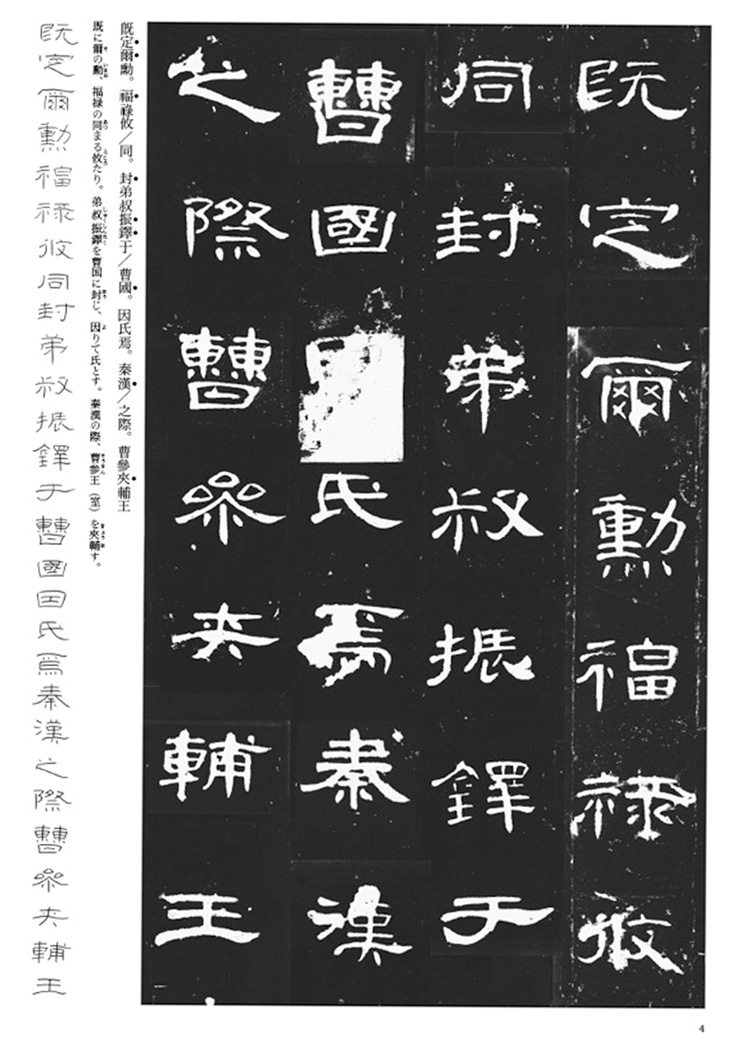 既定爾勳福祿攸
同封弟叔振鐸于
曹國氏焉秦漢
之際曹參夾輔王
既定爾勳。福祿攸/同。封弟叔振鐸于/曹國。因氏焉。秦漢/之際。曹參夾輔王
既に爾の勳、福禄の同まる攸たり。弟叔振鐸を曹国に封じ、因りて氏とす。秦漢の際、曹参王(室)を夾輔す。
既定爾勳福祿攸同封弟叔振鐸于曹國因氏焉秦漢之際曹參夾輔王
4